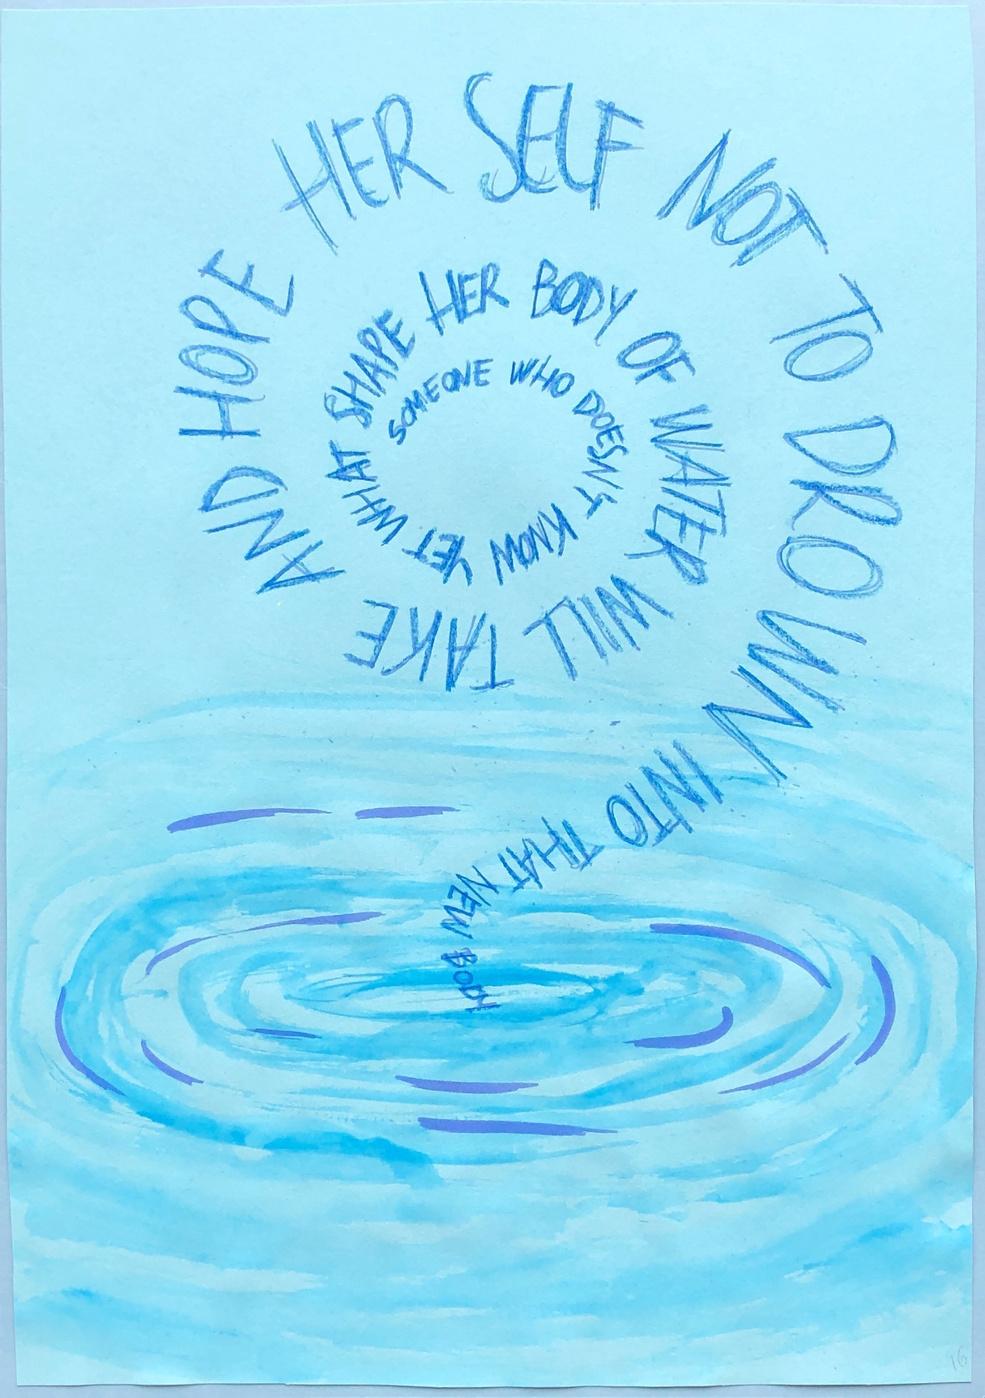 SOMEONE WHO DOESN'T KNOW YET WHAT SHAPE HER BODY OF WATER WILL TAKE AND HOPE HER SELF NOT TO DROWN INTO THAT NEW BODY
16